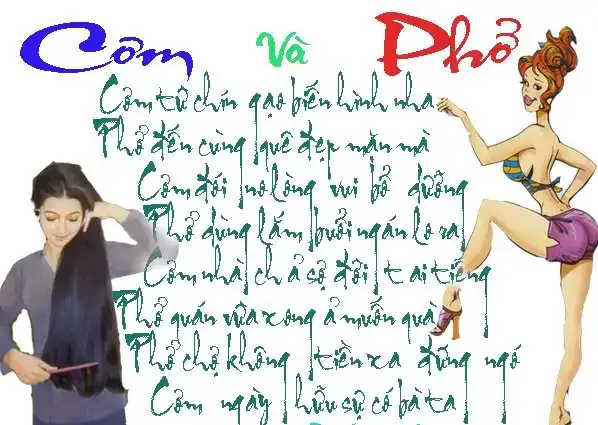 Cơm Và Phở
Cơm từ chín gạo biến hình nha
Phở đến cùng quê đẹp mặn mà
Cơm đói no lòng vui bổ dưỡng
Phở dùng lắm buổi ngán lo ra
Cơm nhà chả sợ đời tai tiếng
Phở quán vừa xong ả muốn quà
Phở chợ không tiền xa đứng ngó
Cơm ngày hữu sự có bà ta